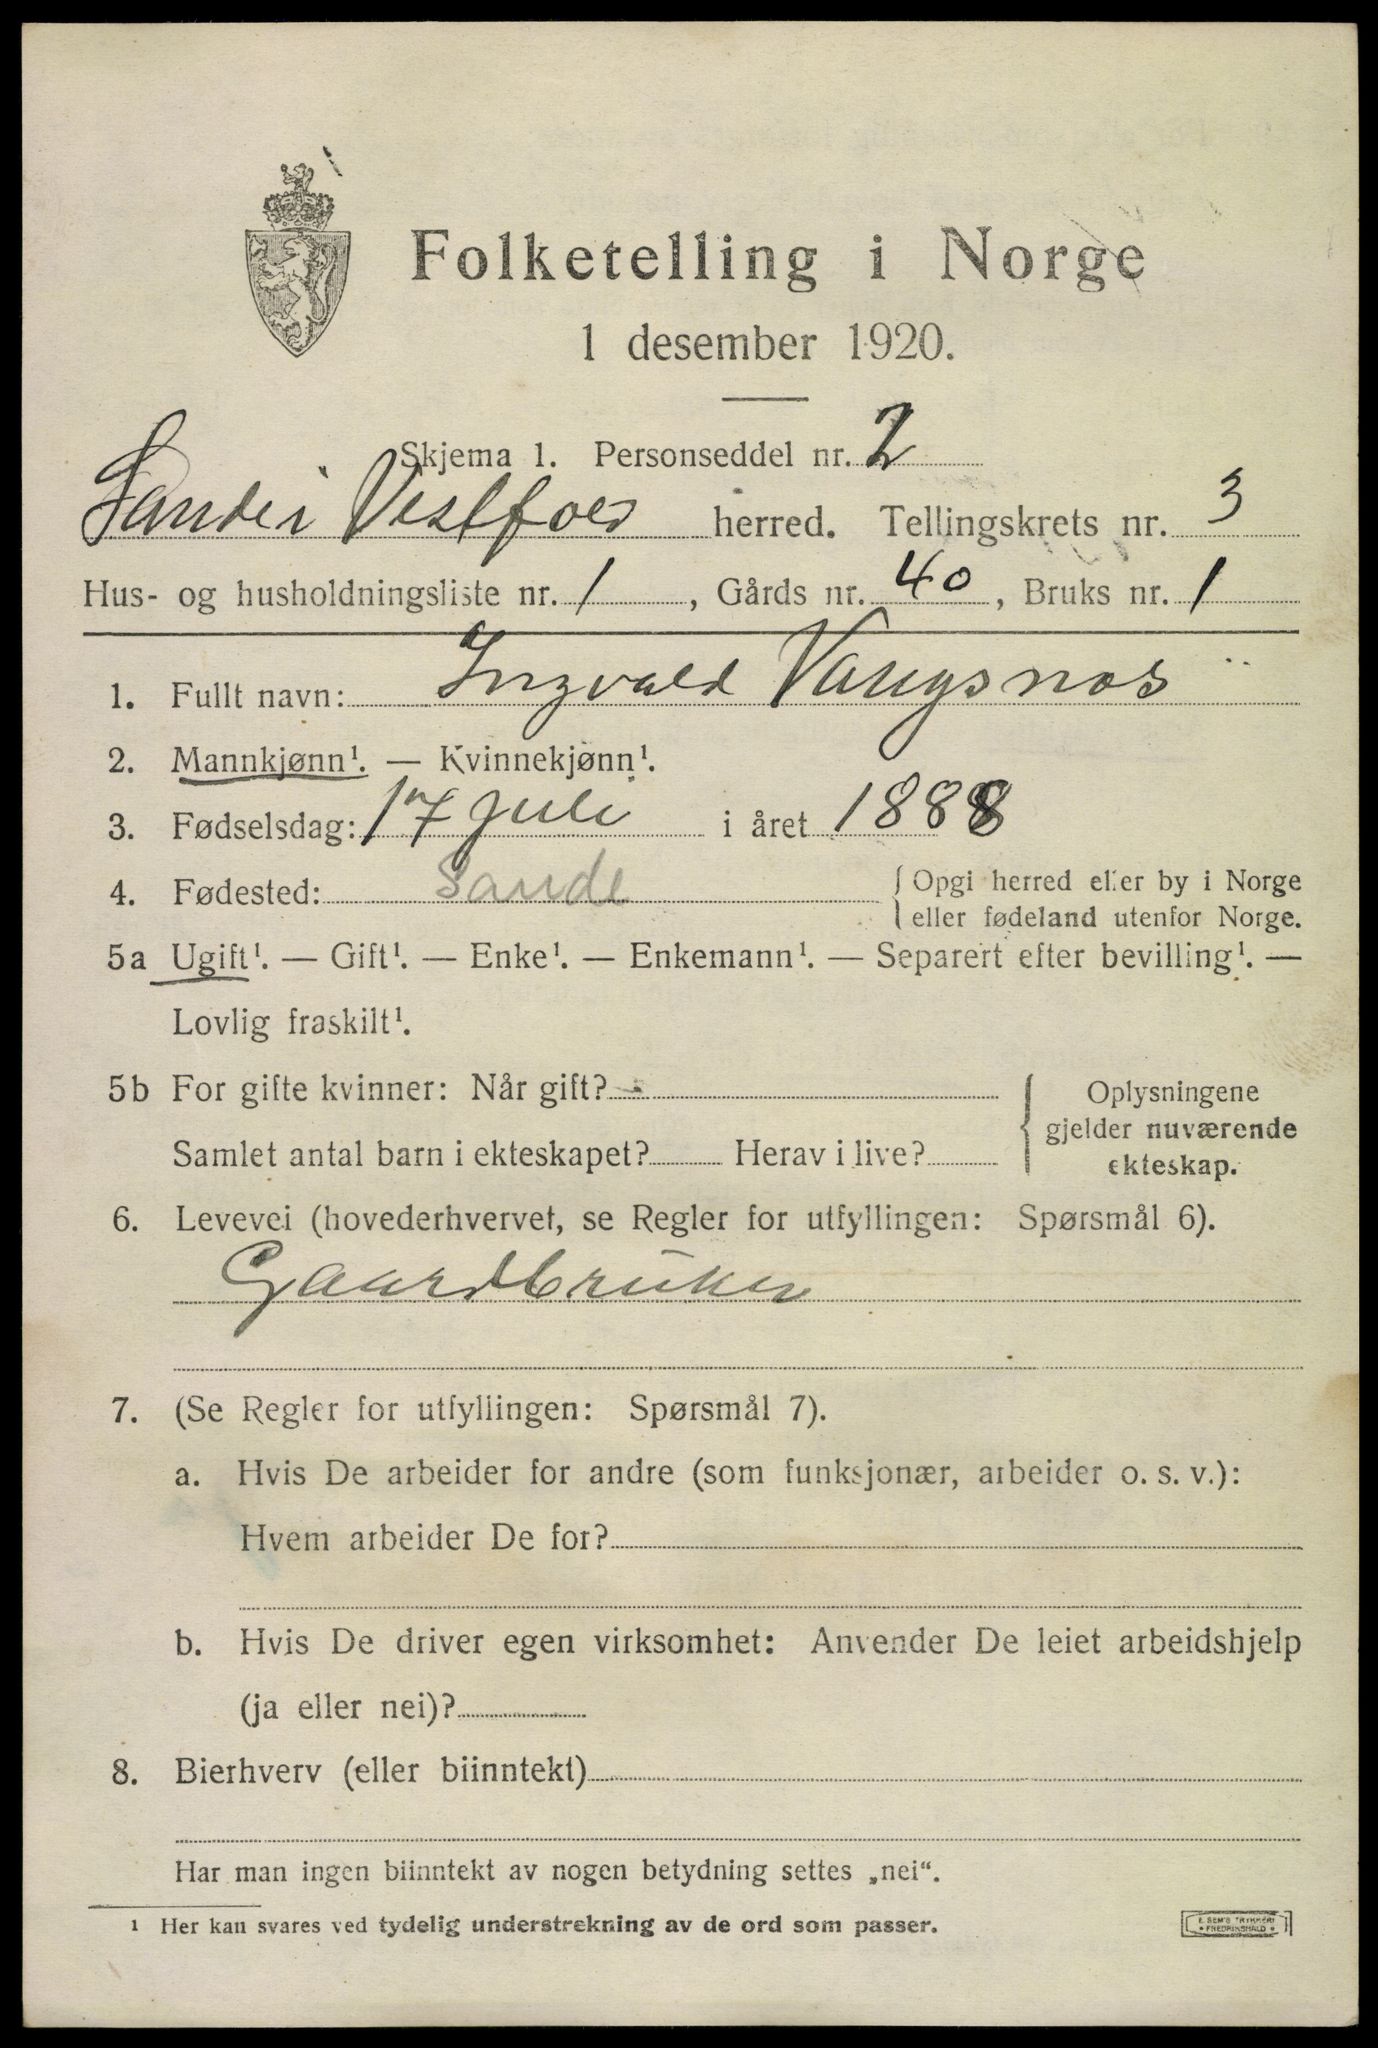 Folketelling i Norge
1 desember 1920.
Skjema 1. Personseddel nr. 2
Sande i Vestfold herred. Tellingskrets nr. 3
Hus- og husholdningsliste nr. 1, Gårds nr. 40, Bruks nr. 1
1. Fullt navn: Ingvald Vangsnos
2. Mannkjønn¹. — Kvinnekjønn¹.
3. Fødselsdag: 17 juli i året 1888
4. Fødested: Sande {Opgi herred eller by i Norge
eller fødeland utenfor Norge.
5a Ugift¹. — Gift¹. — Enke¹. — Enkemann¹. — Separert efter bevilling¹. —
Lovlig fraskilt¹.
5b For gifte kvinner: Når gift?
Samlet antal barn i ekteskapet? Herav i live?
{Oplysningene
gjelder nuværende
ekteskap.
6. Levevei (hovederhvervet, se Regler for utfyllingen: Spørsmål 6).
Gaardbruker
7. (Se Regler for utfyllingen: Spørsmål 7).
a. Hvis De arbeider for andre (som funksjonær, arbeider o. s. v.):
Hvem arbeider De for?
b. Hvis De driver egen virksomhet: Anvender De leiet arbeidshjelp
(ja eller nei)?
8. Bierhverv (eller biinntekt)
Har man ingen biinntekt av nogen betydning settes „nei“.
¹ Her kan svares ved tydelig understrekning av de ord som passer.
E. SEM'S TRYKKERI
FREDRIKSHALD